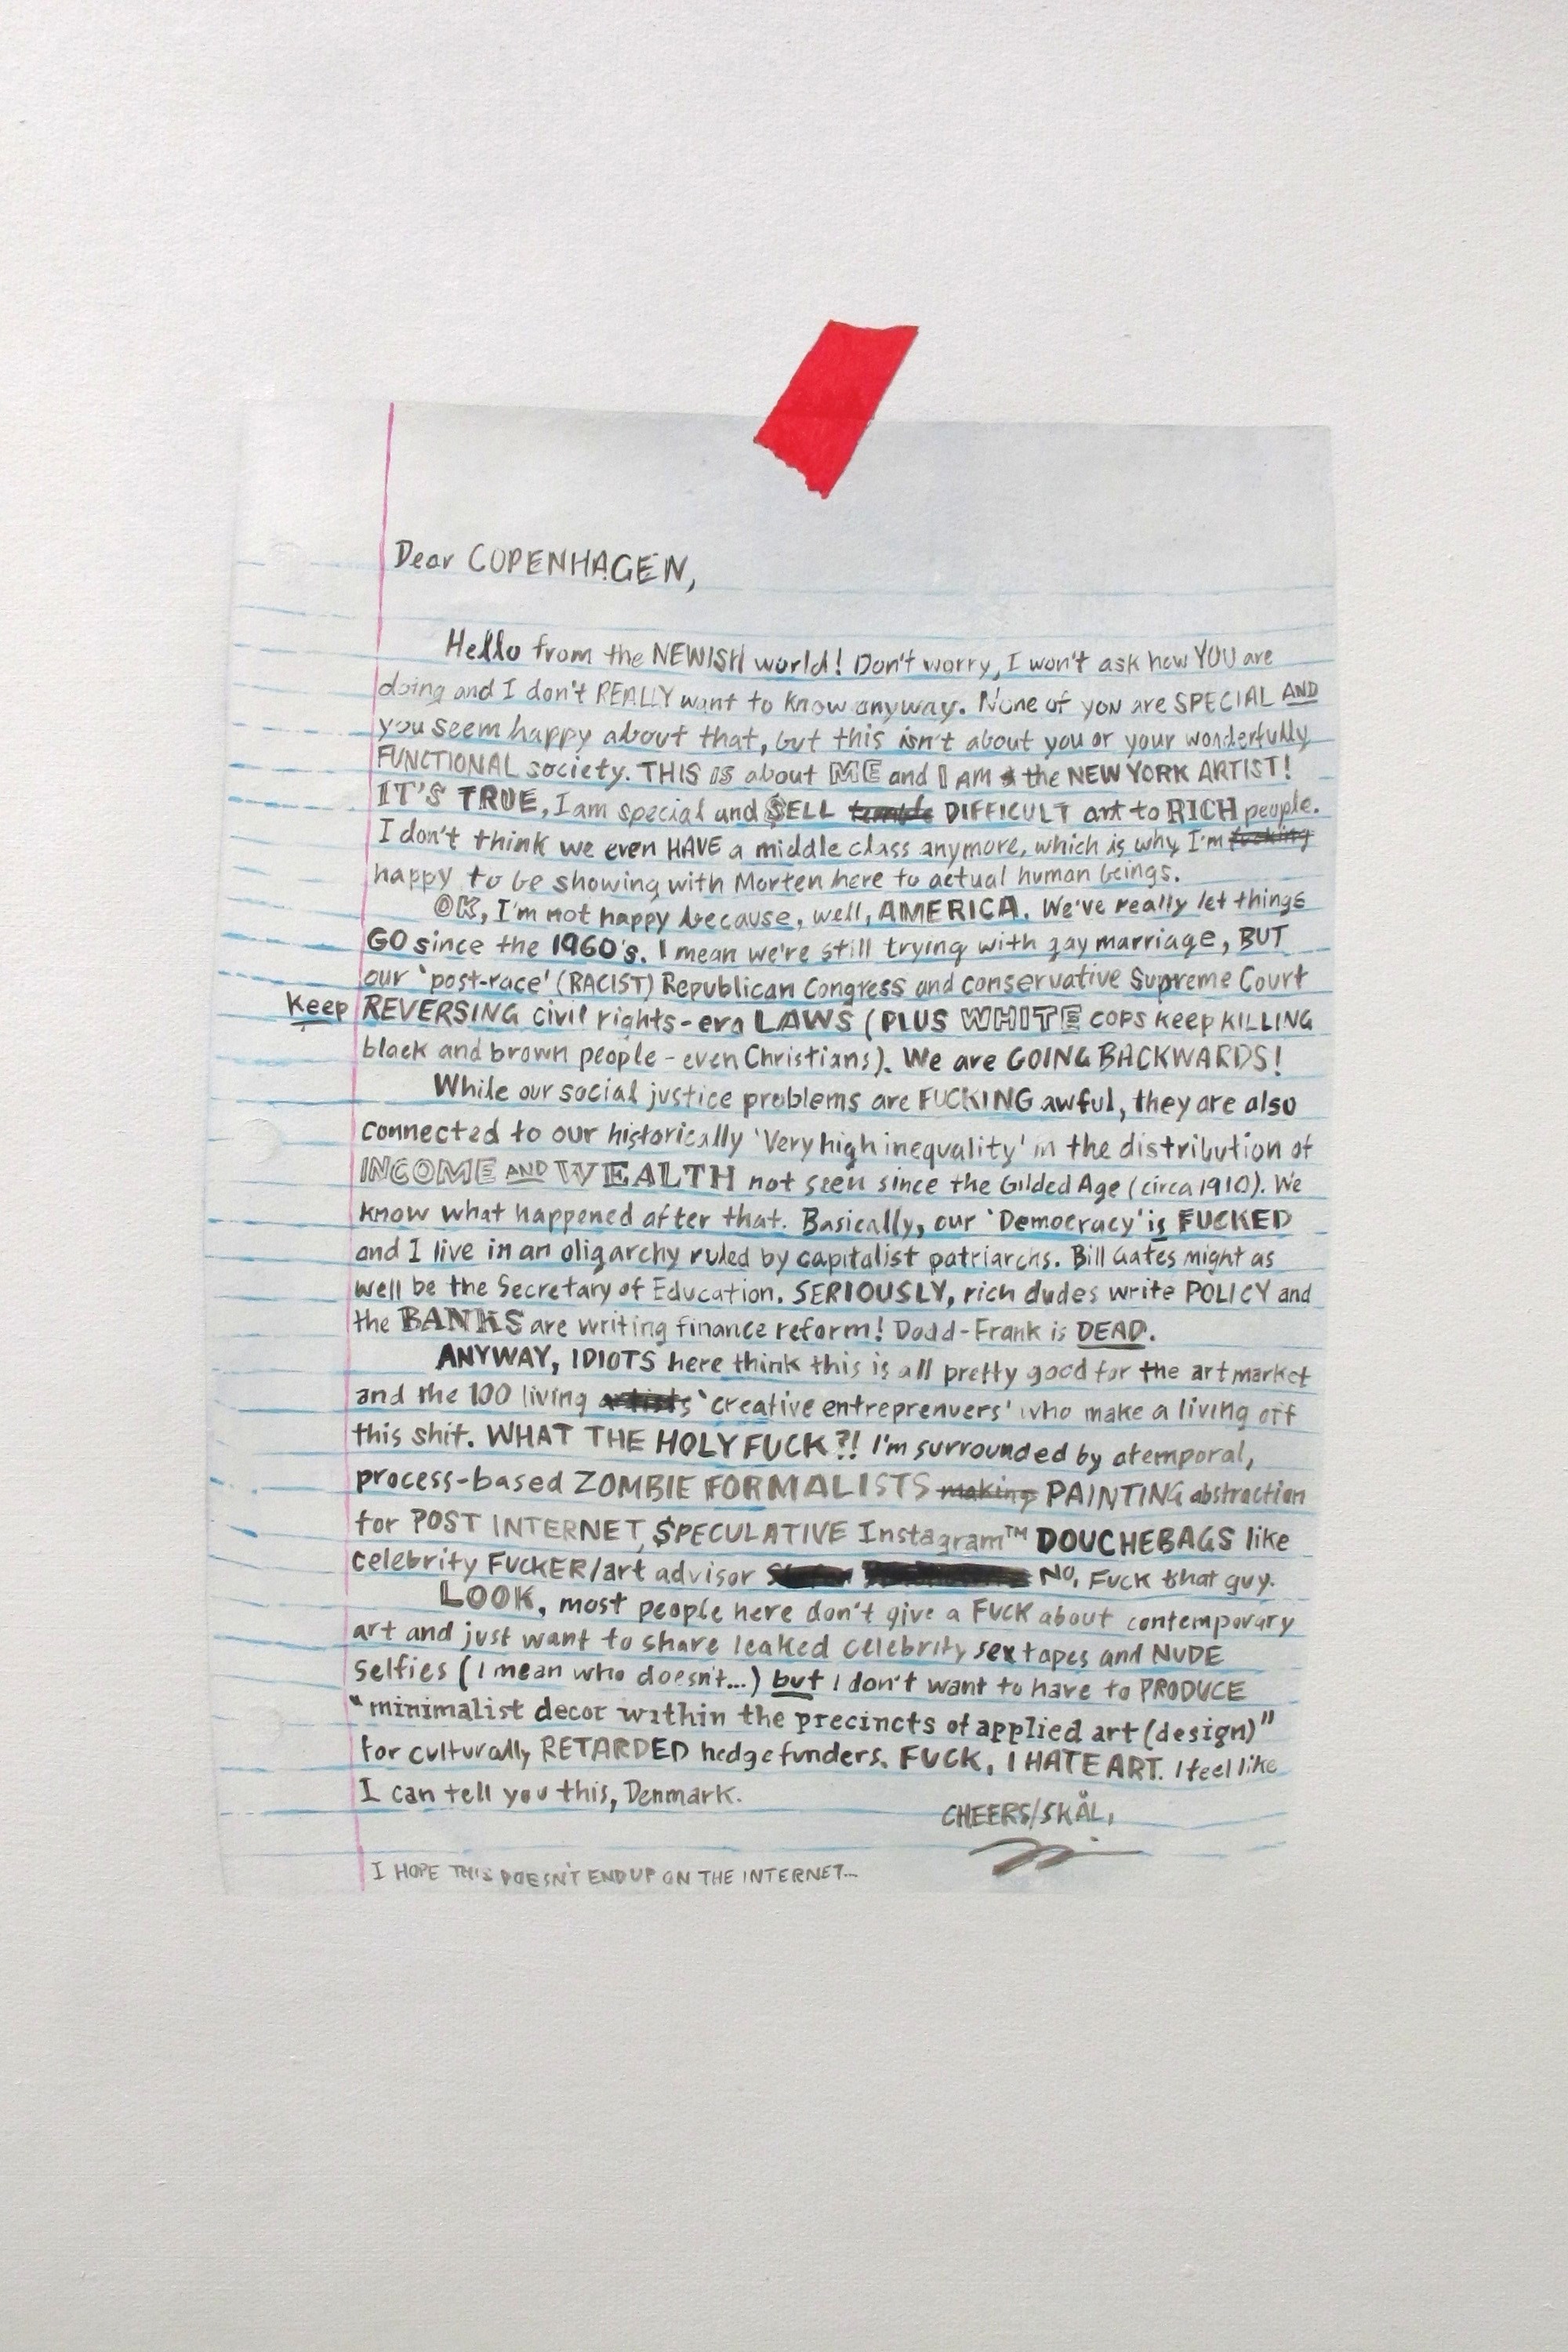 Dear COPENHAGEN,
Hello from the NEWISH world! Don't worry, I won't ask how YOU are
doing and I don't REALLY want to know anyway. None of you are SPECIAL AND
you seem happy about that, but this isn't about you or your wonderfully
FUNCTIONAL society. THIS IS about ME and I AM the NEW YORK ARTIST!
IT'S TRUE, I am special and $ELL DIFFICULT art to RICH people.
I don't think we even HAVE a middle class anymore, which is why I'm fucking
happy to be showing with Morten here to actual human beings.
OK, I'm not happy because, well, AMERICA. We've really let things
GO since the 1960's. I mean we're still trying with gay marriage, BUT
our 'post-race' (RACIST) Republican Congress and conservative Supreme Court
Keep REVERSING civil rights-era LAWS (PLUS WHITE COPS keep KILLING
black and brown people - even Christians). We are GOING BACKWARDS!
While our social justice problems are FUCKING awful, they are also
connected to our historically 'Very high inequality' in the distribution of
INCOME AND WEALTH not seen since the Gilded Age (circa 1910). We
know what happened after that. Basically, our 'Democracy' is FUCKED
and I live in an oligarchy ruled by capitalist patriarchs. Bill Gates might as
well be the Secretary of Education. SERIOUSLY, rich dudes write POLICY and
the BANKS are writing finance reform! Dodd-Frank is DEAD.
ANYWAY, IDIOTS here think this is all pretty good for the art market
and the 100 living artists 'creative entreprenuers' who make a living off
this shit. WHAT THE HOLY FUCK?! I'm surrounded by atemporal,
process-based ZOMBIE FORMALISTS making PAINTING abstraction
for POST INTERNET, $PECULATIVE Instagram™ DOUCHEBAGS like
celebrity FUCKER/art advisor No, FUCK that guy.
LOOK, most people here don't give a FUCK about contemporary
art and just want to share leaked celebrity sex tapes and NUDE
selfies (I mean who doesn't...) but I don't want to have to PRODUCE
"minimalist decor within the precincts of applied art (design)"
for culturally RETARDED hedgefunders. FUCK, I HATE ART. I feel like
I can tell you this, Denmark.
CHEERS/SKÅL,
I HOPE THIS DOESN'T END UP ON THE INTERNET...